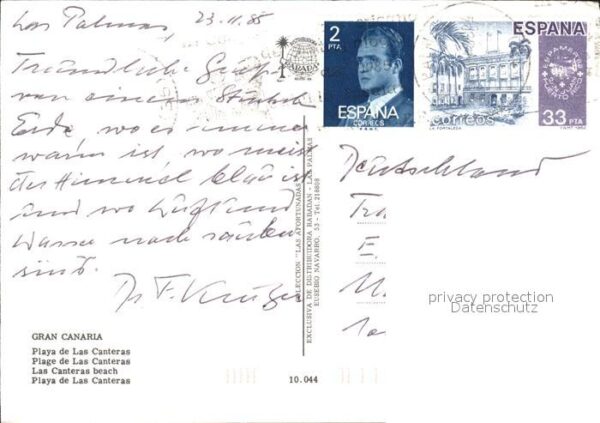 Las Palmas, 23.11.85
Freundliche Grüße
von einem Stückch
Erde, wo es immer
warm ist, wo meist
der Himmel blau ist
und wo Luft und
Wasser noch sauber
sind.
Dr F. Krüger
GRAN CANARIA
Playa de Las Canteras
Plage de Las Canteras
Las Canteras beach
Playa de Las Canteras
10.044
COLECCION "LAS AFORTUNADAS"
EXCLUSIVA DE DISTRIBUIDORA RABADAN - LAS PALMAS
EUSEBIO NAVARRO, 53 - Tel. 218808
RABADAN
2
PTA
ESPAÑA
CORREOS
ESPAÑA
ESPAMER 82
SAN JUAN
PUERTO RICO
33 PTA
correos
LA FORTALEZA
Deutschland
privacy protection
Datenschutz